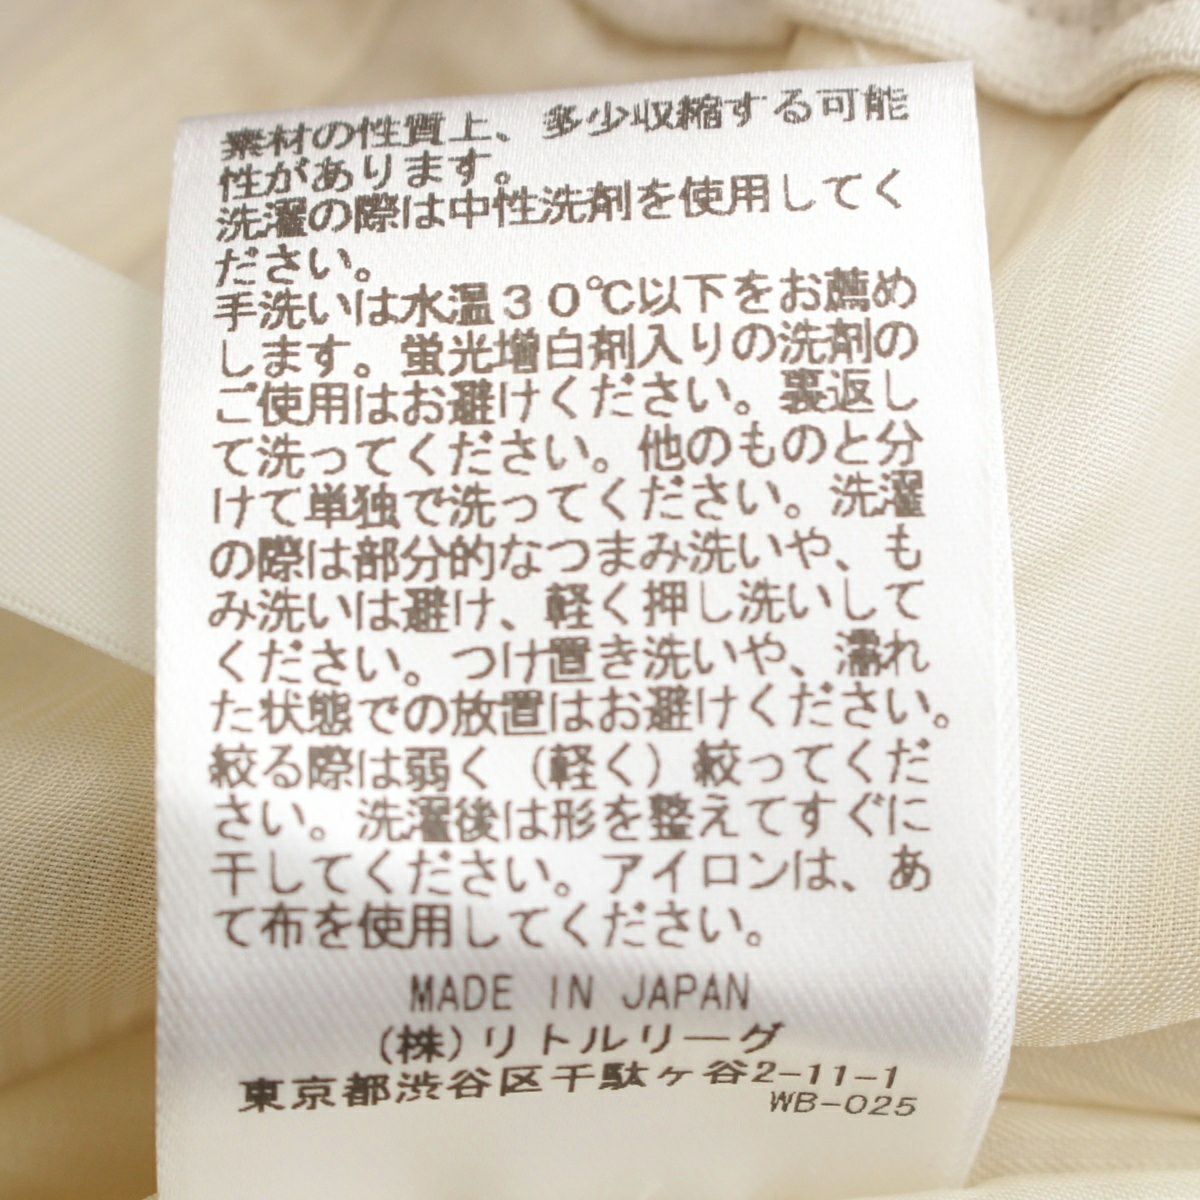 素材の性質上、多少収縮する可能
性があります。
洗濯の際は中性洗剤を使用してく
ださい。
手洗いは水温３０℃以下をお薦め
します。蛍光増白剤入りの洗剤の
ご使用はお避けください。裏返し
て洗ってください。他のものと分
けて単独で洗ってください。洗濯
の際は部分的なつまみ洗いや、も
み洗いは避け、軽く押し洗いして
ください。つけ置き洗いや、濡れ
た状態での放置はお避けください。
絞る際は弱く（軽く）絞ってくだ
さい。洗濯後は形を整えてすぐに
干してください。アイロンは、あ
て布を使用してください。
MADE IN JAPAN
(株)リトルリーグ
東京都渋谷区千駄ヶ谷2-11-1
WB-025